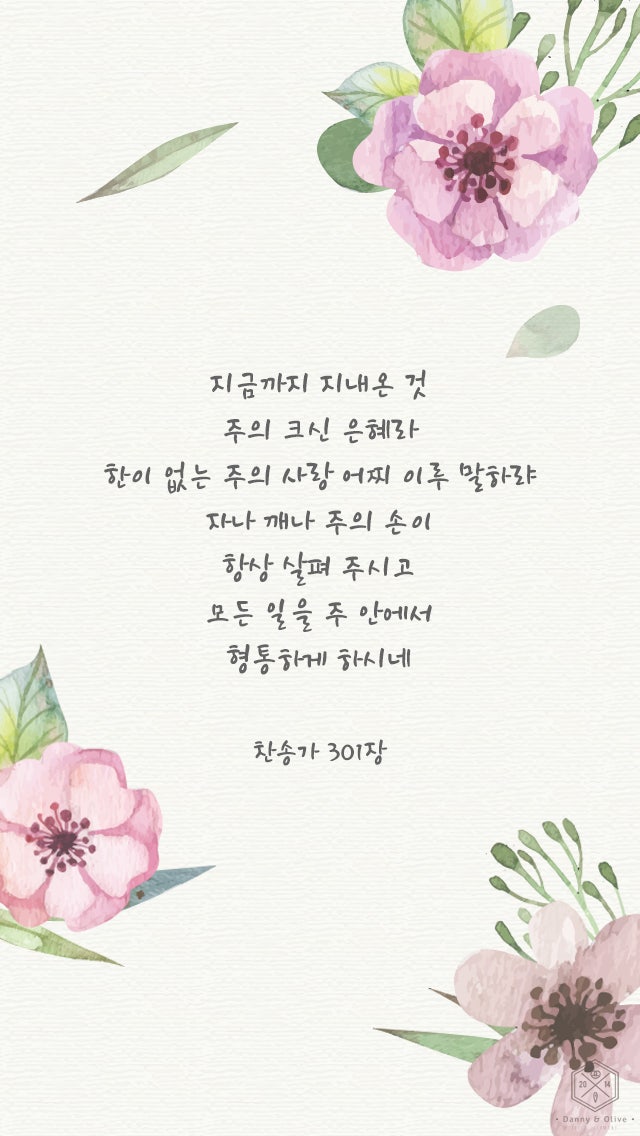 지금까지 지내온 것
주의 크신 은혜라
한이 없는 주의 사랑 어찌 이루 말하랴
자나 깨나 주의 손이
항상 살펴 주시고
모든 일을 주 안에서
형통하게 하시네
찬송가 301장
20 14
• Danny & Olive •